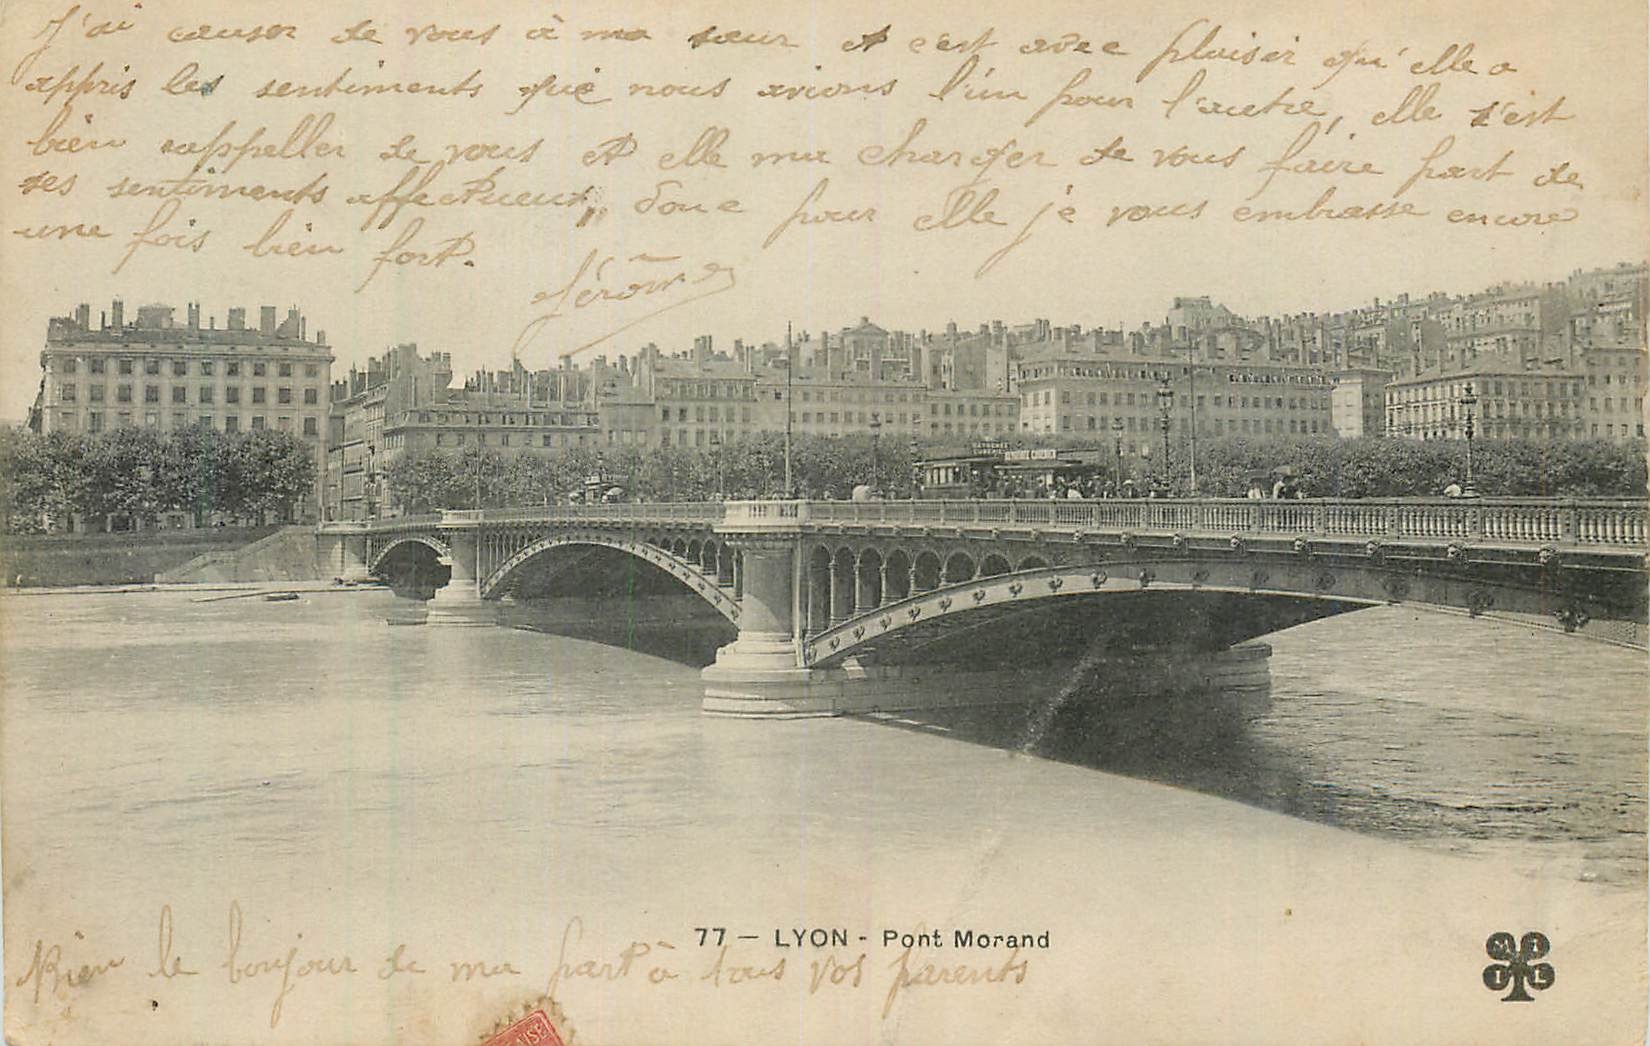 J'ai causer de vous à ma sœur et c'est avec plaisir qu'elle a
appris les sentiments que nous avions l'un pour l'autre, elle s'est
bien rappeller de vous et elle ma charger de vous faire part de
ses sentiments affectueux, donc pour elle je vous embrasse encore
une fois bien fort.
Jérôme
77 — LYON - Pont Morand
Bien le bonjour de ma part à tous vos parents
M I
I L